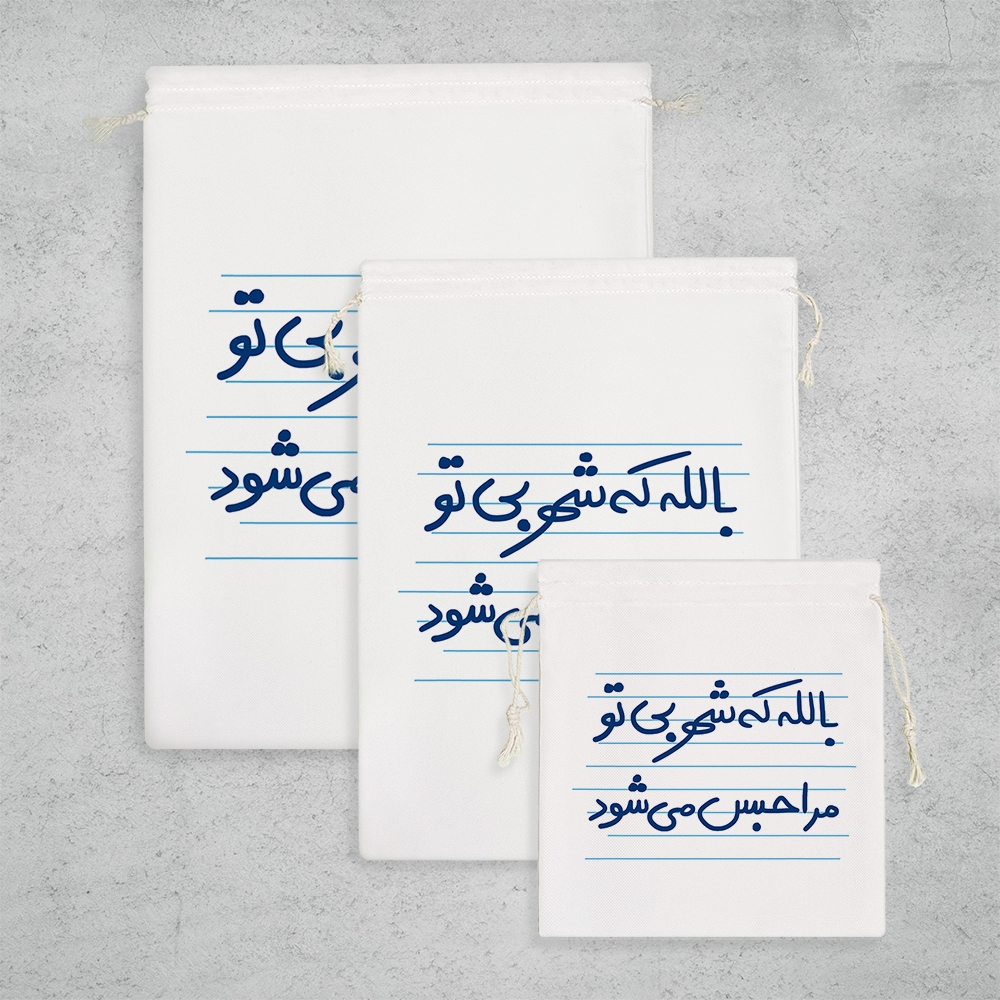 بی تو
می‌شود
بالله که شهر بی تو
می‌شود
بالله که شهر بی تو
مرا حبس می‌شود